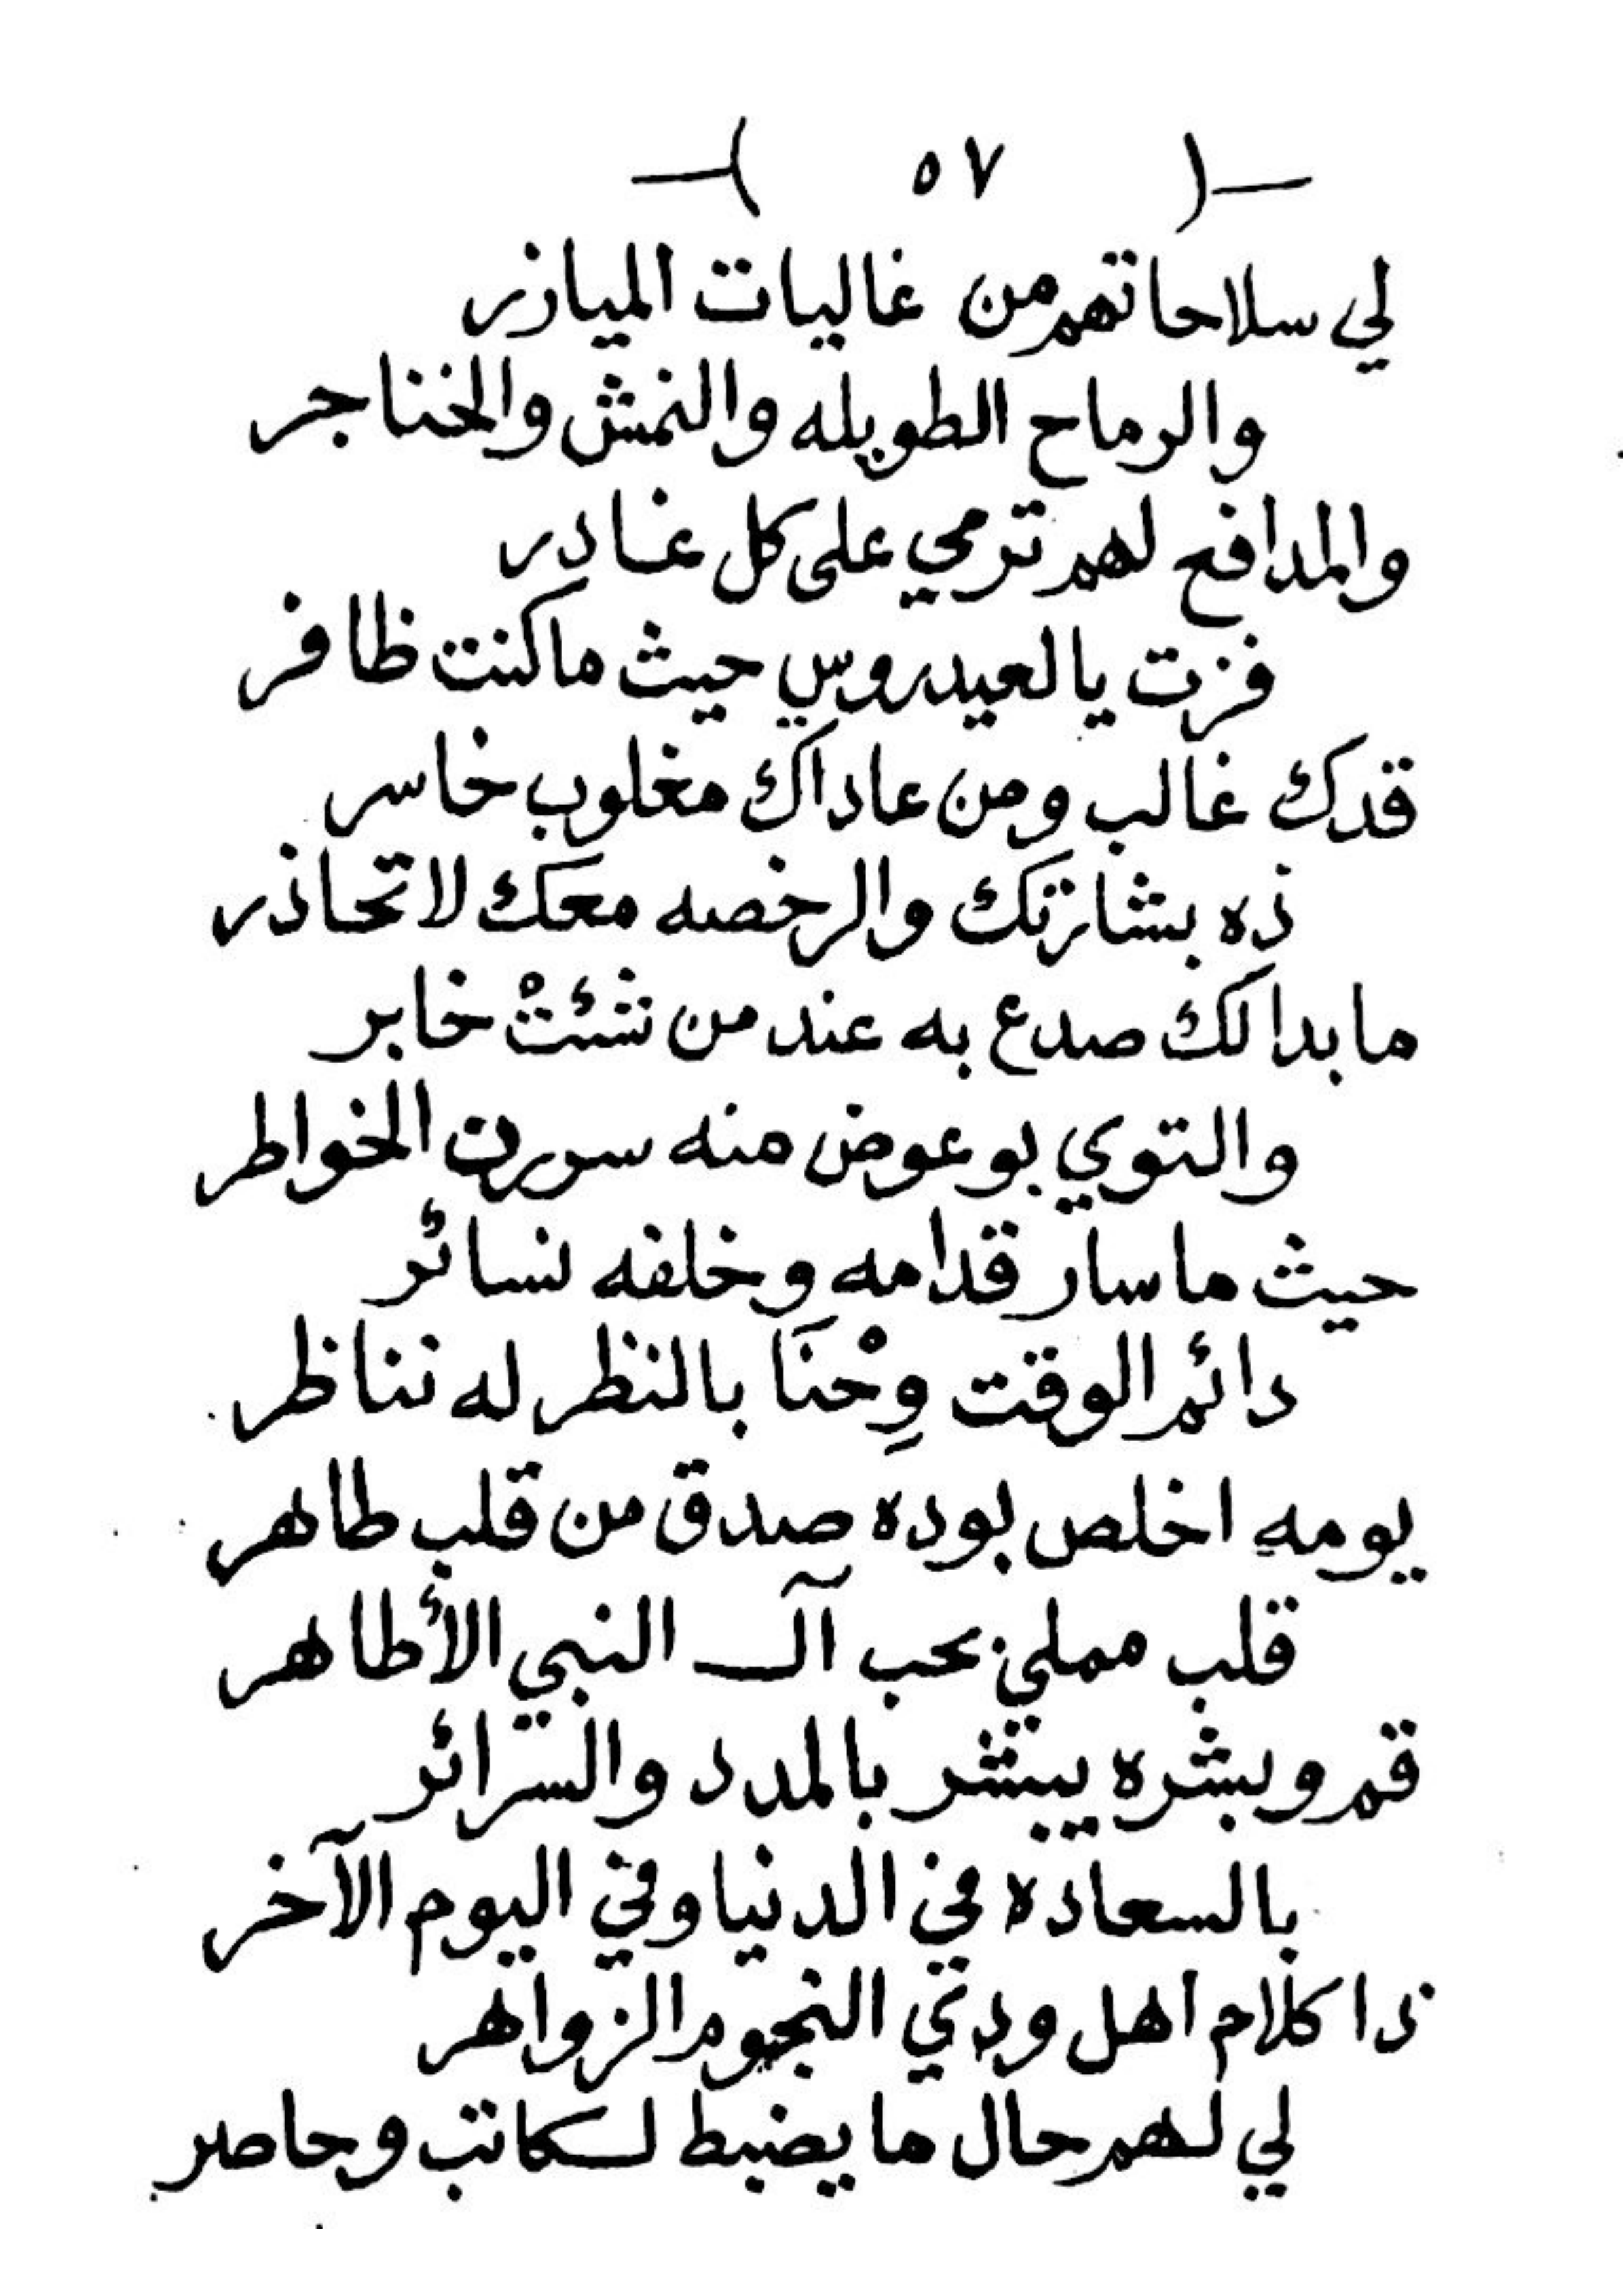 -( ٥٧ )-
لي سلاحاتهم من غاليات الميازر
والرماح الطويله والنمش والخناجر
والمدافع لهم ترمي على كل غادر
فزت يا العيدروس حيث ما كنت ظافر
قدك غالب ومن عاداك مغلوب خاسر
ذه بشارتك والرخصه معك لا تحاذر
ما بدا لك صدع به عند من شئتْ خابر
والتوي بو عوض منه سررن الخواطر
حيث ما سار قدامه وخلفه نسائر
دائم الوقت وِحْنَا بالنظر له نناظر
يومه اخلص بوده صدق من قلب طاهر
قلب مملي بحب آل النبي الأطاهر
قم وبشره يبشر بالمدد والسرائر
بالسعاده في الدنيا وفي اليوم الآخر
ذا كلام اهل ودي النجوم الزواهر
لي لهم حال ما يضبط لكاتب وحاصر